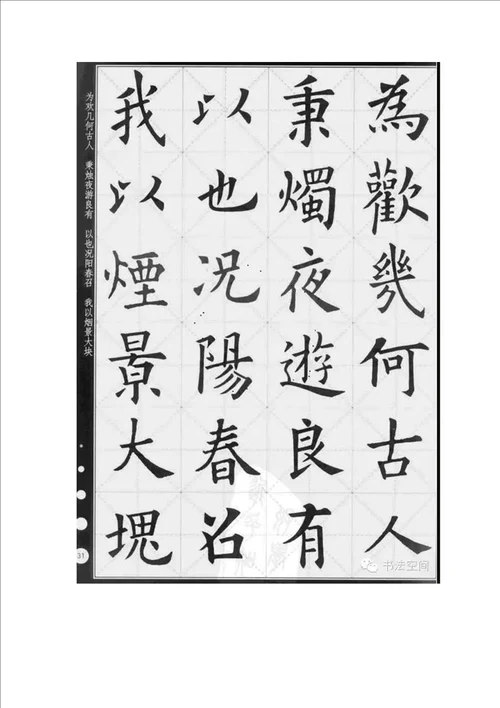 為歡幾何古人
秉燭夜遊良有
以也况陽春召
我以煙景大塊
为欢几何古人　秉烛夜游良有　以也况阳春召　我以烟景大块
31
书法空间